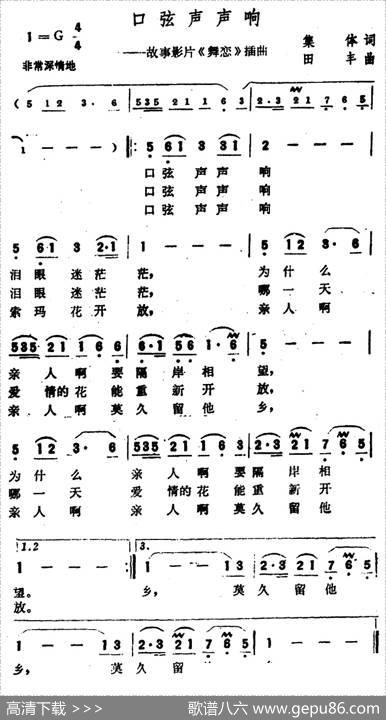 口弦声声响
1=G 4/4
——故事影片《舞恋》插曲
集体 词
田丰 曲
非常深情地
(5 12 3· 6 | 535 21 6 1 | 2·3 21 7 6 5 |
1 — — —) ‖: 5 61 3 31 | 2 — — — |
口弦声声响
口弦声声响
口弦声声响
5 61 3 2·1 | 1 — — — | 5 12 3· 6 |
泪眼迷茫茫, 为什么
泪眼迷茫茫, 哪一天
索玛花开放, 亲人啊
535 21 1 61 | 6·1 56 1·6 | 5 — — — |
亲人啊要隔岸相望,
爱情的花能重新开放,
亲人啊莫久留他乡,
5 12 3· 6 | 535 21 1 6 3 | 2·3 21 7 6 5 |
为什么 亲人啊要隔岸相
哪一天 爱情的花能重新开
亲人啊 亲人啊莫久留他
1.2 3.
1 — — — :‖ 1 — — 13 | 2·3 21 7 6 5 |
望。 乡, 莫久留他
放。
1 — — 13 | 2·3 21 7 6 5 | 1 — — — ‖
乡, 莫久留
高清下载 >>> 歌谱八六 www.gepu86.com